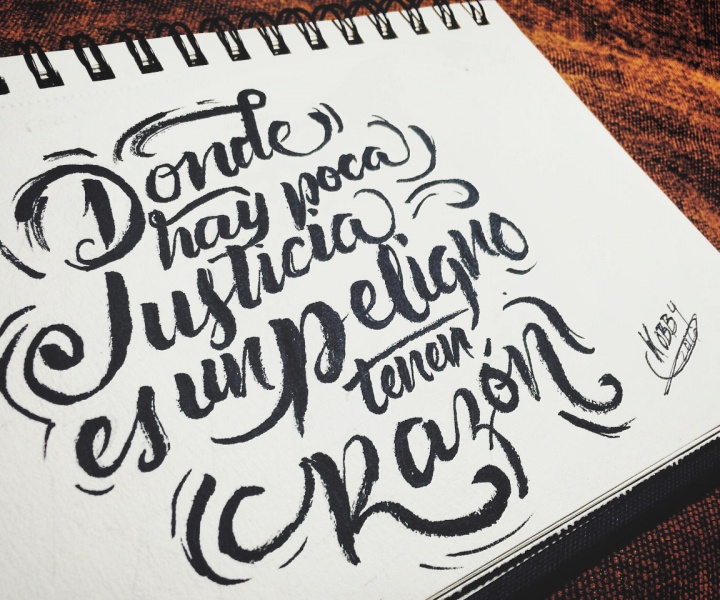 Donde
hay poca
Justicia
es un peligro
tener
Razón
KOBBY